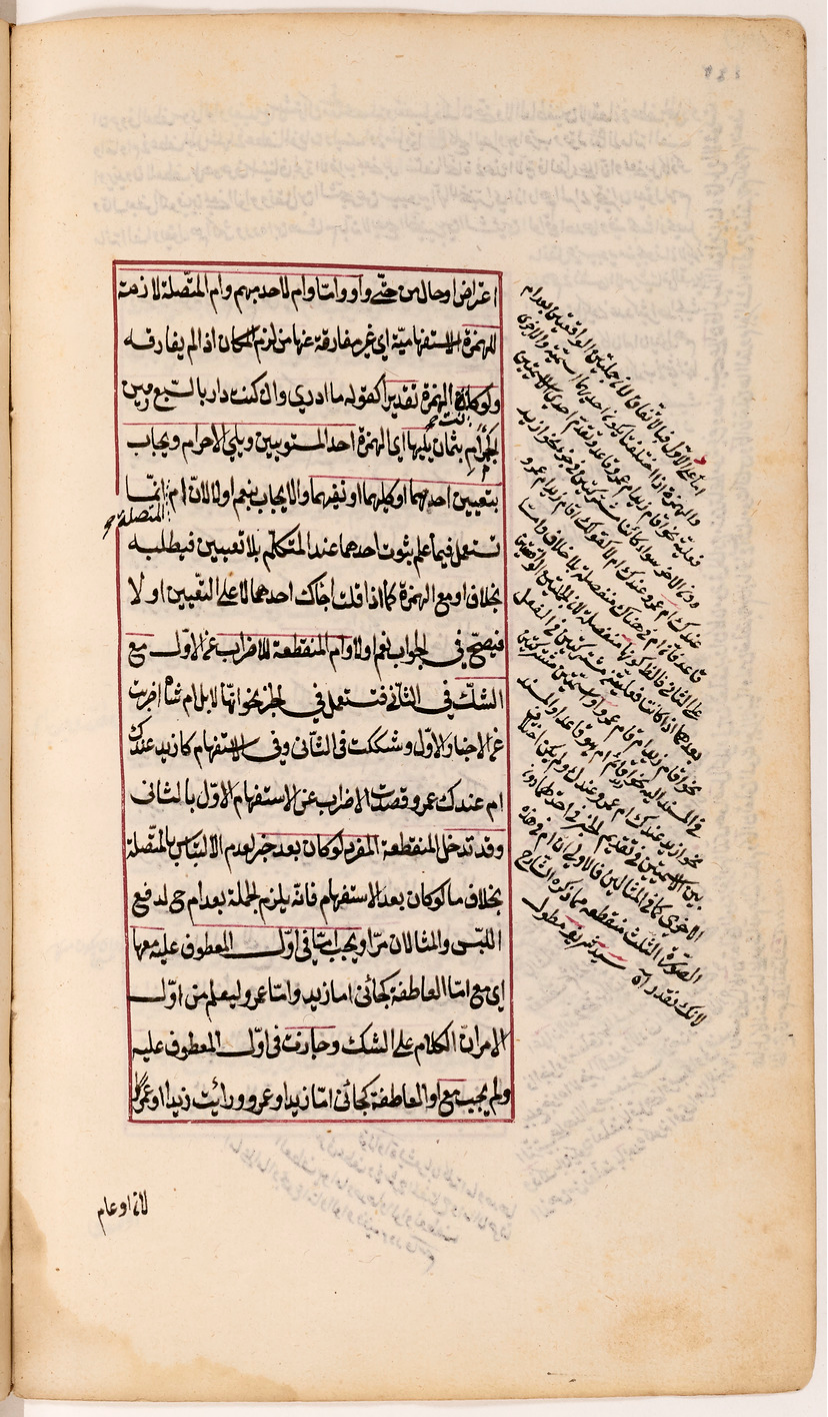 اعتراض او حال من حتّى واو وامّا وام لاحد مبهم وام المتّصلة لازمة
للهمزة الاستفهاميّة اى غير مفارقة عنها من لزم المكان اذا لم يفارقه
ولو كانت الهمزة تقديرا كقوله ما ادرى وان كنت داريا بسبع رمين
الجمر ام بثمان يليها اى الهمزة احد المستويين ويلى الاخر ام ويجاب
بتعيين احدهما او كليهما او نفيهما والايجاب بنعم اولا لان ام المتصلة انّما
تستعمل فيما علم ثبوت احدهما عند المتكلّم بلا تعيين فيطلبه
بخلاف او مع الهمزة كما اذا قلت اجاك احدهما لا على التّعيين او لا
فيصحّ فى الجواب نعم اولا وام المنقطعة للاضراب عن الاوّل مع
الشكّ فى الثّانى فتستعمل فى الخبر نحو انّها لابل ام شاة اضربت
عن الاخبار الاوّل وشككت فى الثّانى وفى الاستفهام كازيد عندك
ام عندك عمرو قصدت الاضراب عن الاستفهام الاوّل بالثانى
وقد تدخل المنقطعة المفرد لو كان بعد خبر لعدم الالتباس بالمتّصلة
بخلاف ما لو كان بعد الاستفهام فانّه يلزم الجملة بعد ام ح لدفع
اللبس والمثالان مرّا ويجب امّا فى اوّل المعطوف عليه معها
اى مع امّا العاطفة كجائنى اما زيد وامّا عمرو ليعلم من اوّل
الامر انّ الكلام على الشك وجازت فى اوّل المعطوف عليه
ولم يجب مع او العاطفة كجائنى امّا زيد او عمرو ورايت زيدا او عمرًا
لان او عام
اما على الاوّل فبالاتفاق لان الجملتين الواقعتين بعد ام
والهمزة اذا اختلفتا بكون احديهما اسمية والاخرى
فعلية نحو اقام زيد ام عمرو قاعد وتقدم احدى الاسميتين
دون الاخر سواء كانتا مشتركتين فى جزء نحو ازيد
عندك ام عمرو عندك ام لا كقولك اقام زيد ام عمرو
قاعد فام فى هناك منفصلة بلا خلاف واما
على الثانى فالظ كونها منفصلة لان الجملتين الواقعتين
بعدها اذا كانتا فعليتين مشتركتين فى الفعل
نحو اقام زيد ام قام عمرو او اسميتين مشتركتين
فى المسند اليه نحو اقائم ام هو قاعد او المسند
نحو ازيد عندك ام عمرو عندك ولم يكن اختلاف
بين الاسميتين فى تقديم الخبر فى احديهما دون
الاخرى كما فى المثالين فالاولى ان ام فى هذه
الصورة الثلث منقطعة مما ذكره الشارح
لانك تقدر اه سيد شريف مطول